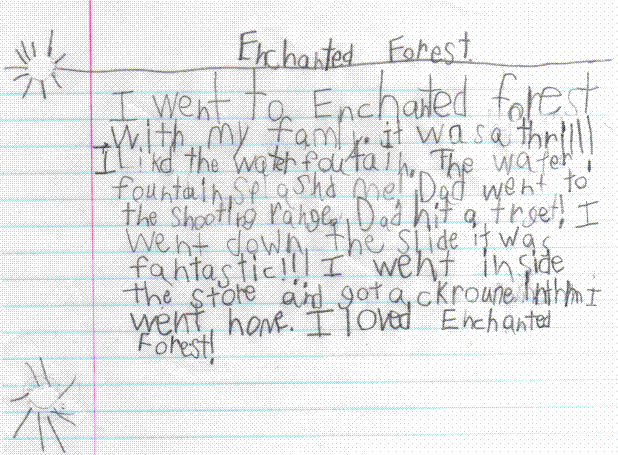 Enchanted Forest
I went to Enchanted forest
with my famly. it was a thrillll
I Likd the waterfoutain. The water
fountain splashd me! Dad went to
the shooting range. Dad hit a trget! I
went down the slide it was
fantastic!!! I went inside
the store and got a ckroune! I
went home. I loved Enchanted
Forest!